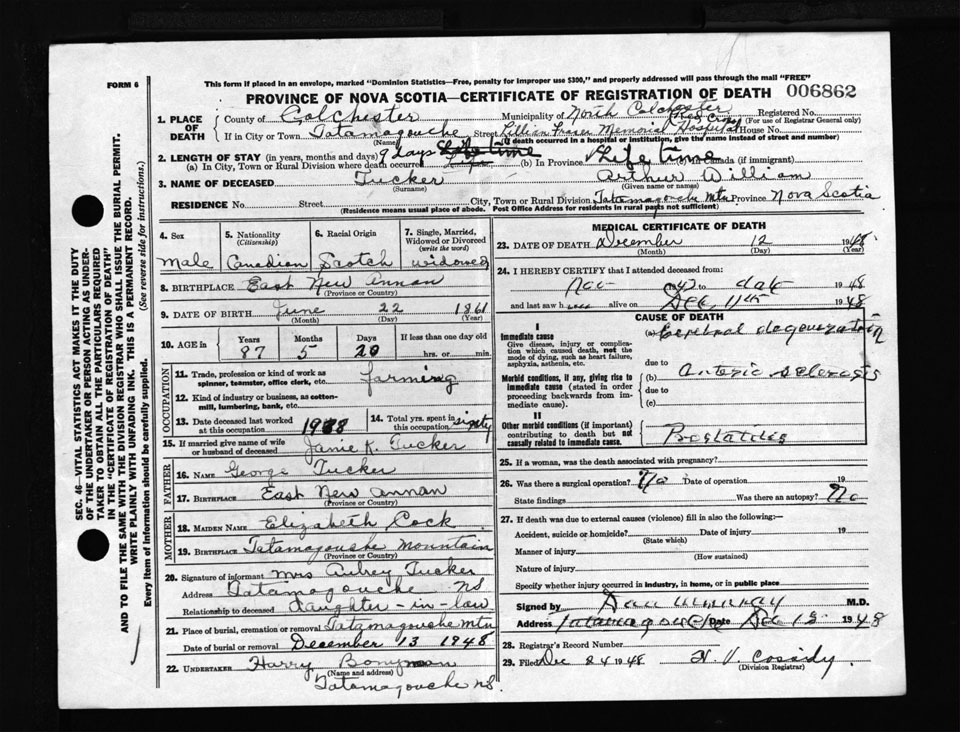 FORM 6
This form if placed in an envelope, marked "Dominion Statistics—Free, penalty for improper use $300," and properly addressed will pass through the mail "FREE"
PROVINCE OF NOVA SCOTIA—CERTIFICATE OF REGISTRATION OF DEATH 006862
1. PLACE OF DEATH
County of Colchester Municipality of North Colchester Registered No.
(For use of Registrar General only)
If in City or Town Tatamagouche Street Lillian Fraser Memorial Hospital Red Cross House No.
(Name) (If death occurred in a hospital or institution, give its name instead of street and number)
2. LENGTH OF STAY (in years, months and days) 9 days
(a) In City, Town or Rural Division where death occurred (b) In Province Life time Canada (if immigrant)
3. NAME OF DECEASED Tucker Arthur William
(Surname) (Given name or names)
RESIDENCE No. Street City, Town or Rural Division Tatamagouche Mtn Province Nova Scotia
(Residence means usual place of abode. Post Office Address for residents in rural parts not sufficient)
4. Sex
5. Nationality (Citizenship)
6. Racial Origin
7. Single, Married, Widowed or Divorced (write the word)
Male Canadian Scotch widowed
8. BIRTHPLACE East New Annan
(Province or Country)
9. DATE OF BIRTH June 22 1861
(Month) (Day) (Year)
10. AGE in Years Months Days If less than one day old
87 5 20 hrs. or min.
OCCUPATION
11. Trade, profession or kind of work as spinner, teamster, office clerk, etc. farming
12. Kind of industry or business, as cotton-mill, lumbering, bank, etc.
13. Date deceased last worked at this occupation 1938
14. Total yrs. spent in this occupation sixty
15. If married give name of wife or husband of deceased Janie K. Tucker
FATHER
16. NAME George Tucker
17. BIRTHPLACE East New Annan
(Province or Country)
MOTHER
18. MAIDEN NAME Elizabeth Cock
19. BIRTHPLACE Tatamagouche Mountain
(Province or Country)
20. Signature of informant Mrs Aubrey Tucker
Address Tatamagouche NS
Relationship to deceased daughter-in-law
21. Place of burial, cremation or removal Tatamagouche Mtn
Date of burial or removal December 13 1948
22. UNDERTAKER Harry Bonyman
(Name and address)
Tatamagouche N.S.
MEDICAL CERTIFICATE OF DEATH
23. DATE OF DEATH December 12 1948
(Month) (Day)
24. I HEREBY CERTIFY that I attended deceased from:
Nov to date 1948
and last saw h alive on Dec. 11th 1948
CAUSE OF DEATH
I
Immediate cause
Give disease, injury or complication which caused death, not the mode of dying, such as heart failure, asphyxia, asthenia, etc.
(a) Cerebral degeneration
due to
Morbid conditions, if any, giving rise to immediate cause (stated in order proceeding backwards from immediate cause).
(b) Arterio sclerosis
due to
(c)
II
Other morbid conditions (if important) contributing to death but not causally related to immediate cause.
Prostatitis
25. If a woman, was the death associated with pregnancy?
26. Was there a surgical operation? No Date of operation 19
State findings Was there an autopsy? No
27. If death was due to external causes (violence) fill in also the following:—
Accident, suicide or homicide? Date of injury 19
(State which)
Manner of injury
(How sustained)
Nature of injury
Specify whether injury occurred in industry, in home, or in public place
Signed by Dan Murray M.D.
Address Tatamagouche Date Dec 13 1948
28. Registrar's Record Number
29. Filed Dec 24 1948 H. V. Cassidy
(Division Registrar)
SEC. 46—VITAL STATISTICS ACT MAKES IT THE DUTY
OF THE UNDERTAKER OR PERSON ACTING AS UNDER-
TAKER TO OBTAIN ALL THE PARTICULARS REQUIRED
IN THE "CERTIFICATE OF REGISTRATION OF DEATH"
AND TO FILE THE SAME WITH THE DIVISION REGISTRAR WHO SHALL ISSUE THE BURIAL PERMIT.
WRITE PLAINLY WITH UNFADING INK. THIS IS A PERMANENT RECORD.
Every item of information should be carefully supplied. (See reverse side for instructions.)